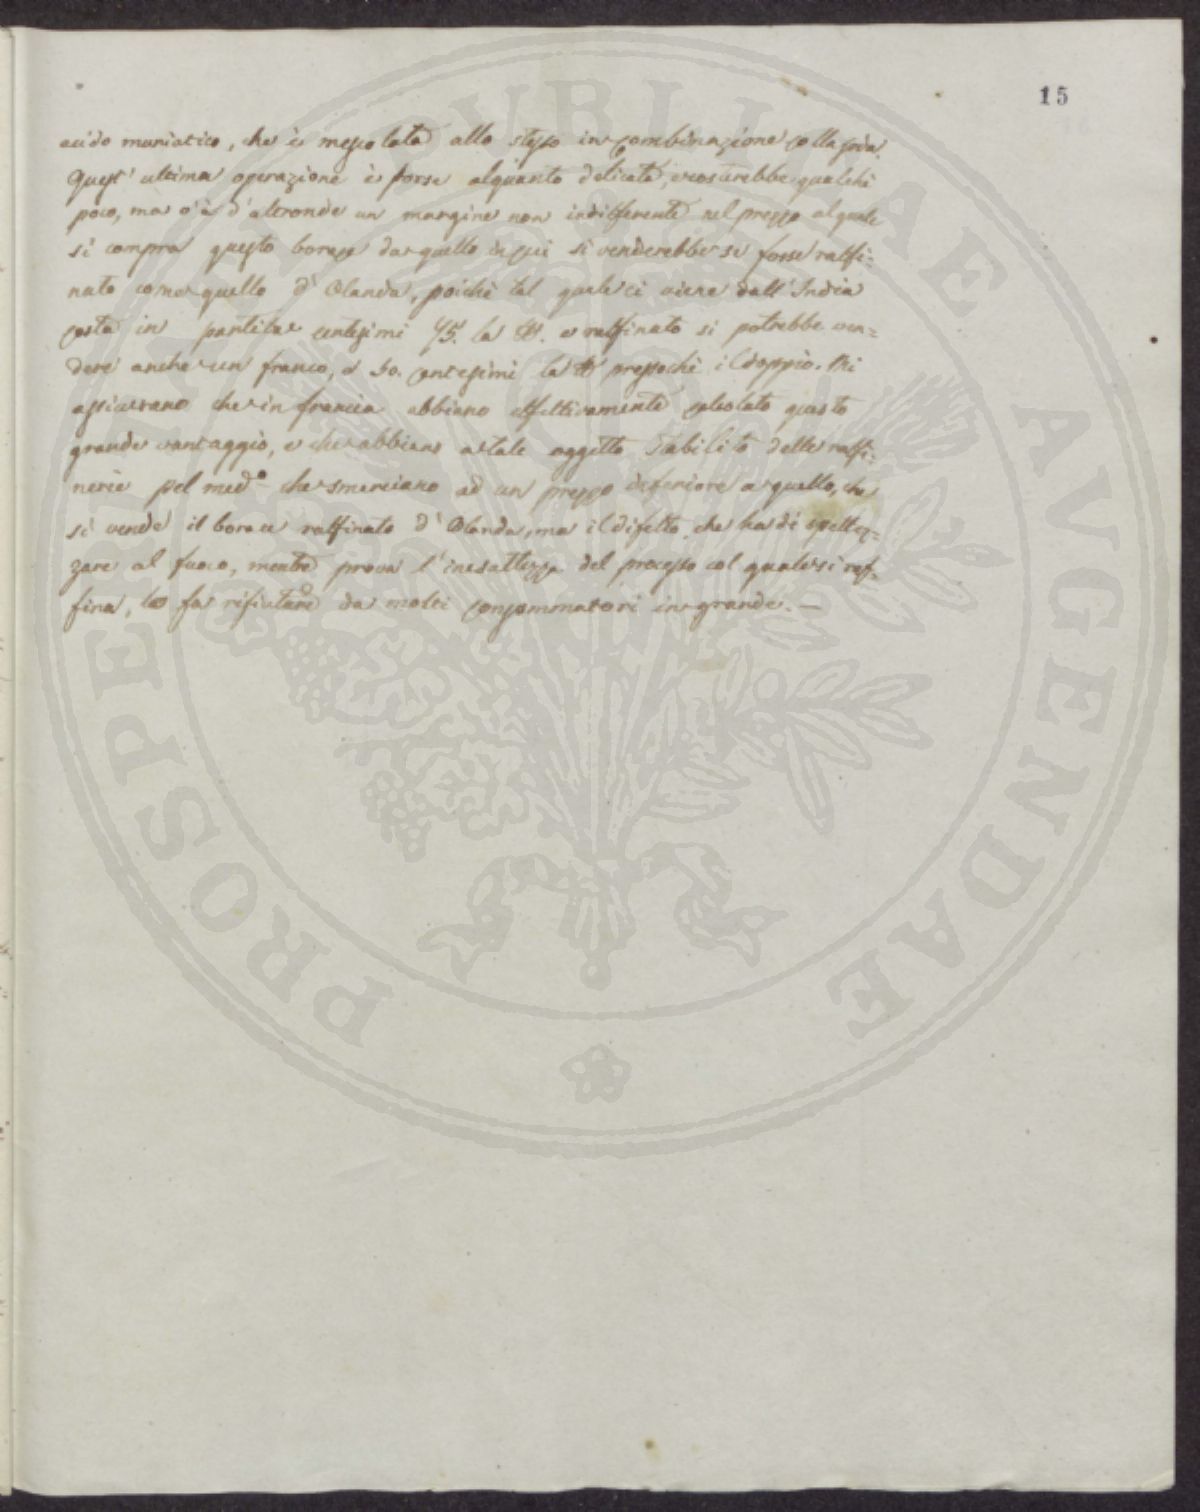 15
acido muriatico, che è mescolato allo stesso in combinazione colla soda.
Quest' ultima operazione è forse alquanto delicata, e costerebbe qualche
poco, ma v'è d'altronde un margine non indifferente nel prezzo al quale
si compra questo borace da quello in cui si venderebbe se fosse raffi=
nato come quello d' Olanda, poichè tal quale ci viene dall' India
costa in partita centesimi 75. la ℔. e raffinato si potrebbe ven=
dere anche un franco, e 50. centesimi la ℔ pressochè il doppio. Mi
assicurano che in francia abbiano effettivamente calcolato questo
grande vantaggio, e che abbiano a tale oggetto stabilito delle raffi=
nerie pel med.o che smerciano ad un prezzo inferiore a quello, che
si vende il borace raffinato d' Olanda, ma il difetto che ha di spettez=
zare al fuoco, mentre prova l' inesattezza del processo col quale si raf=
fina, lo fa rifiutare da molti consommatori in grande. —
PROSPERITATI PUBLICAE AUGENDAE